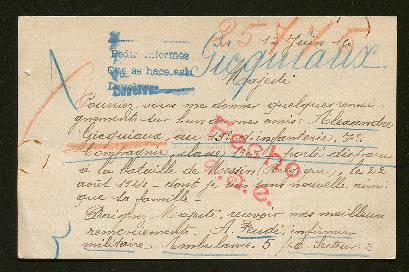 25745
1 Juin 1
Pedir informes
Que se hace asi
Giaquiaux
Majesté
Pourriez vous me donner quelques rensei
gnements sur l'un de mes amis: Alexandre
Giaquiaux, au d'infanterie, 7e
Compagnie, classe porté disparu
à la bataille de (Belgique), le 22
août 1914 - dont je suis sans nouvelle ainsi
que sa famille -
Daignez, Majesté, recevoir mes meilleurs
remerciements. A. infirmier
militaire. Ambulance 5 Secteur 2
Fecho